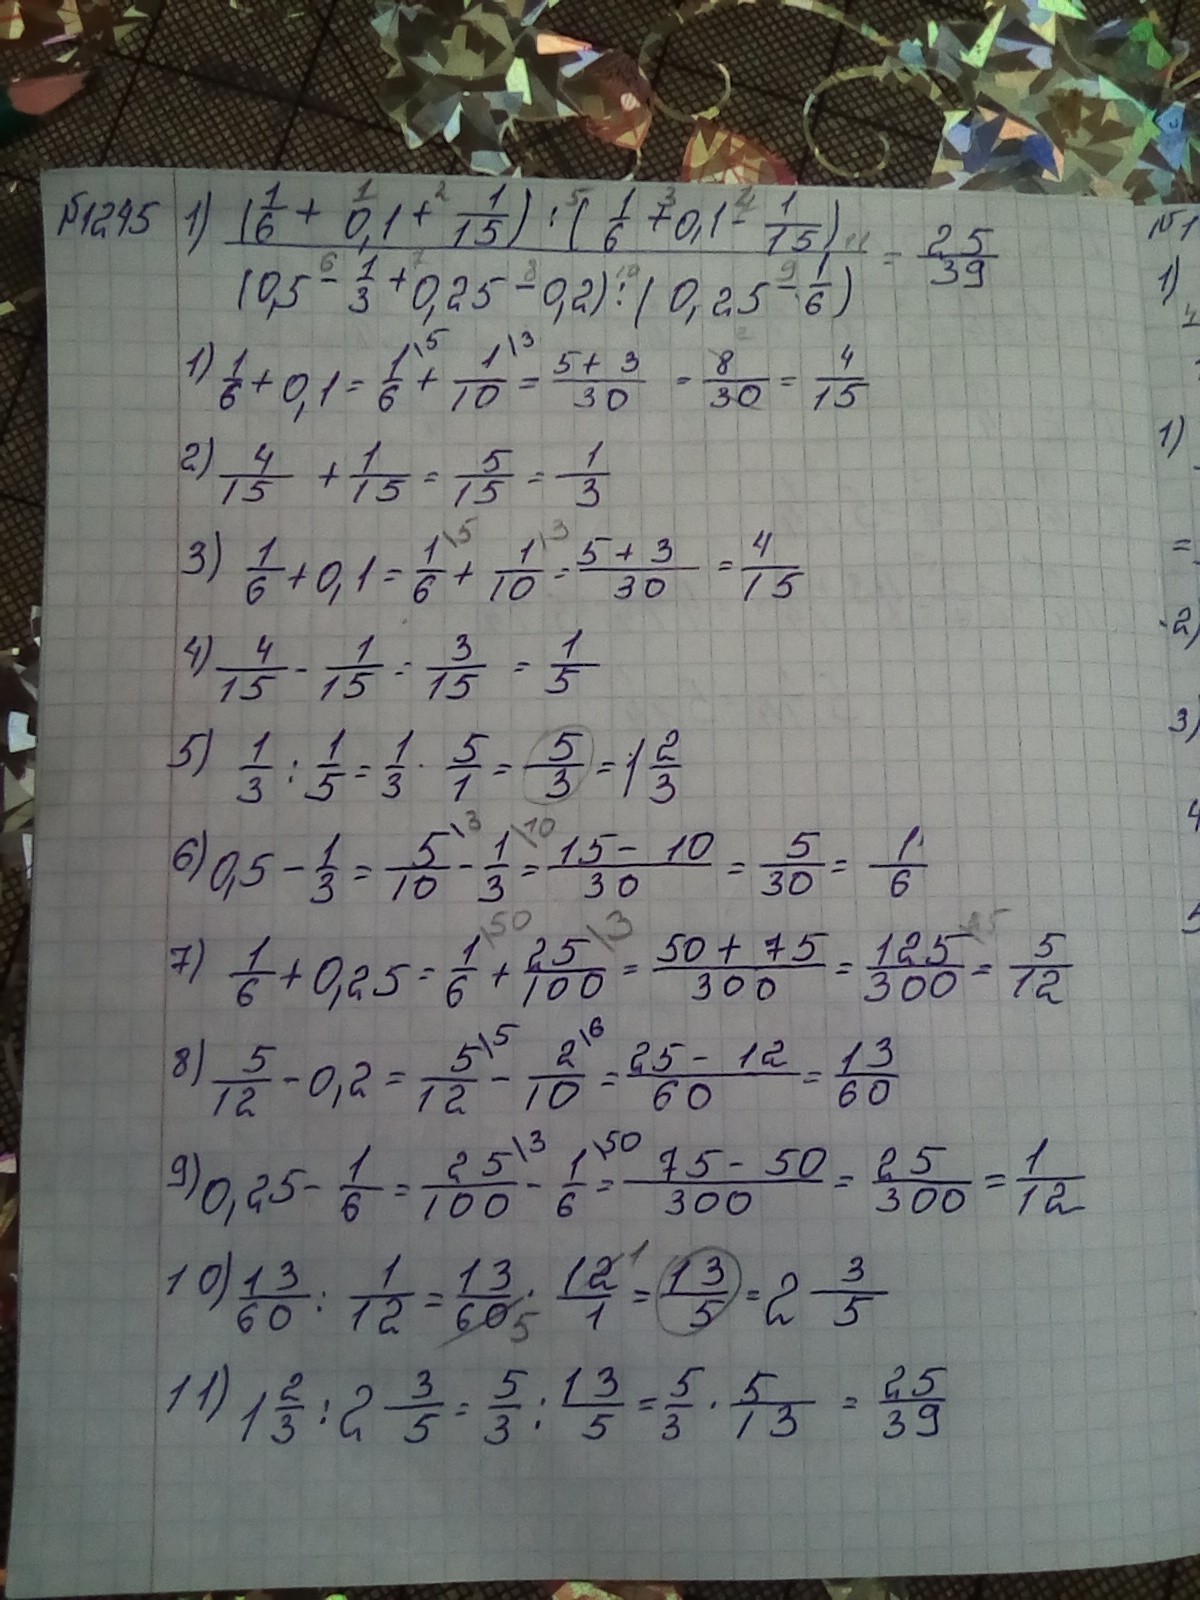 №1245 1) (1/6 + 0,1 + 1/15) : (1/6 + 0,1 - 1/15) / (0,5 - 1/3 + 0,25 - 0,2) : (0,25 - 1/6) = 25/39
1) 1/6 + 0,1 = 1/6\5 + 1/10\3 = 5+3/30 = 8/30 = 4/15
2) 4/15 + 1/15 = 5/15 = 1/3
3) 1/6 + 0,1 = 1/6\5 + 1/10\3 = 5+3/30 = 4/15
4) 4/15 - 1/15 = 3/15 = 1/5
5) 1/3 : 1/5 = 1/3 · 5/1 = 5/3 = 1 2/3
6) 0,5 - 1/3 = 5/10\3 - 1/3\10 = 15-10/30 = 5/30 = 1/6
7) 1/6 + 0,25 = 1/6\50 + 25/100\3 = 50+75/300 = 125/300 = 5/12
8) 5/12 - 0,2 = 5/12\5 - 2/10\6 = 25-12/60 = 13/60
9) 0,25 - 1/6 = 25/100\3 - 1/6\50 = 75-50/300 = 25/300 = 1/12
10) 13/60 : 1/12 = 13/60 5 · 12 1/1 = 13/5 = 2 3/5
11) 1 2/3 : 2 3/5 = 5/3 : 13/5 = 5/3 · 5/13 = 25/39
№1
1)
1)
=
2)
3)
4
5